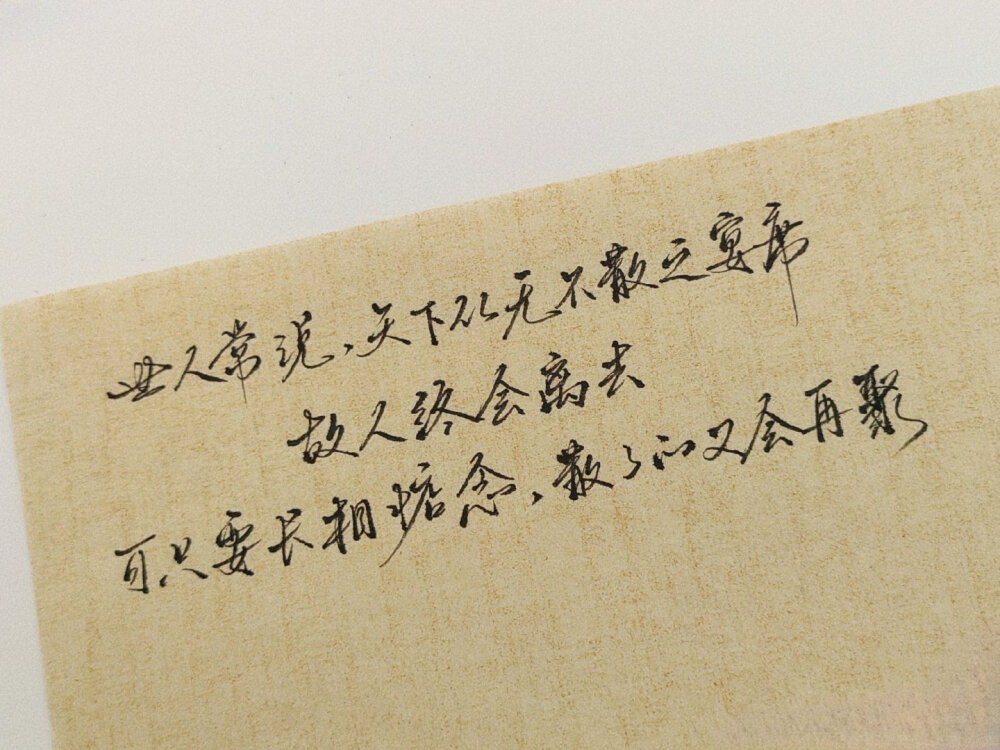 世人常说，天下从无不散之宴席
故人终会离去
可只要长相惦念，散了的又会再聚